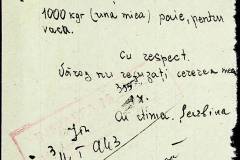 1000 kgr (una mie) paie, pentru
vaca.
Cu respect.
Vă rog nu refuzați cererea mea
Cu stima. Serbina
1943